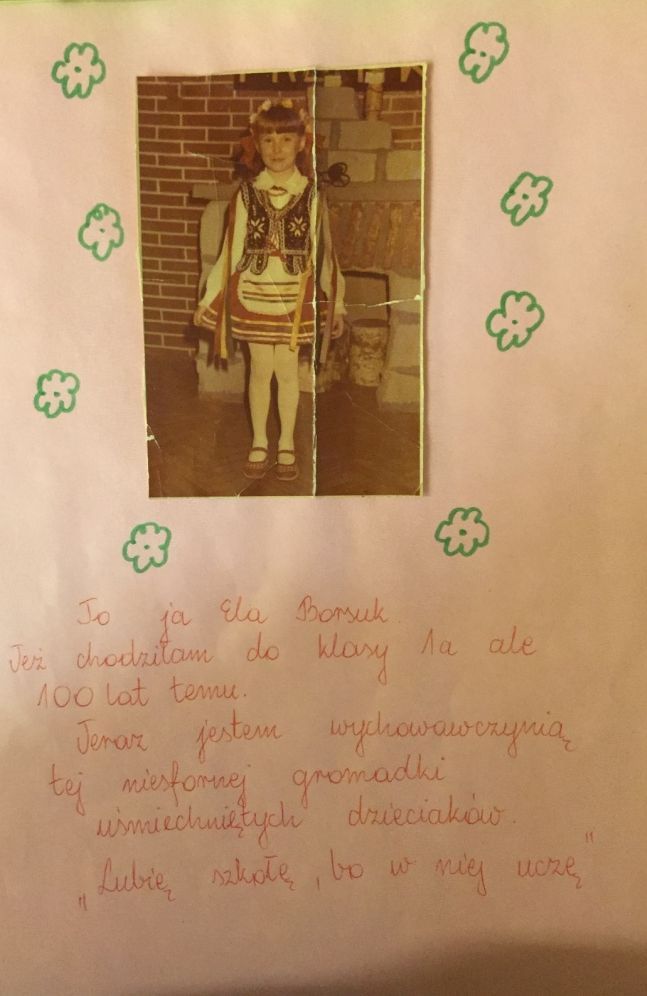 To ja Ela Borsuk.
Też chodziłam do klasy 1a ale
100 lat temu.
Teraz jestem wychowawczynią
tej niesfornej gromadki
uśmiechniętych dzieciaków.
„Lubię szkołę, bo w niej uczę”